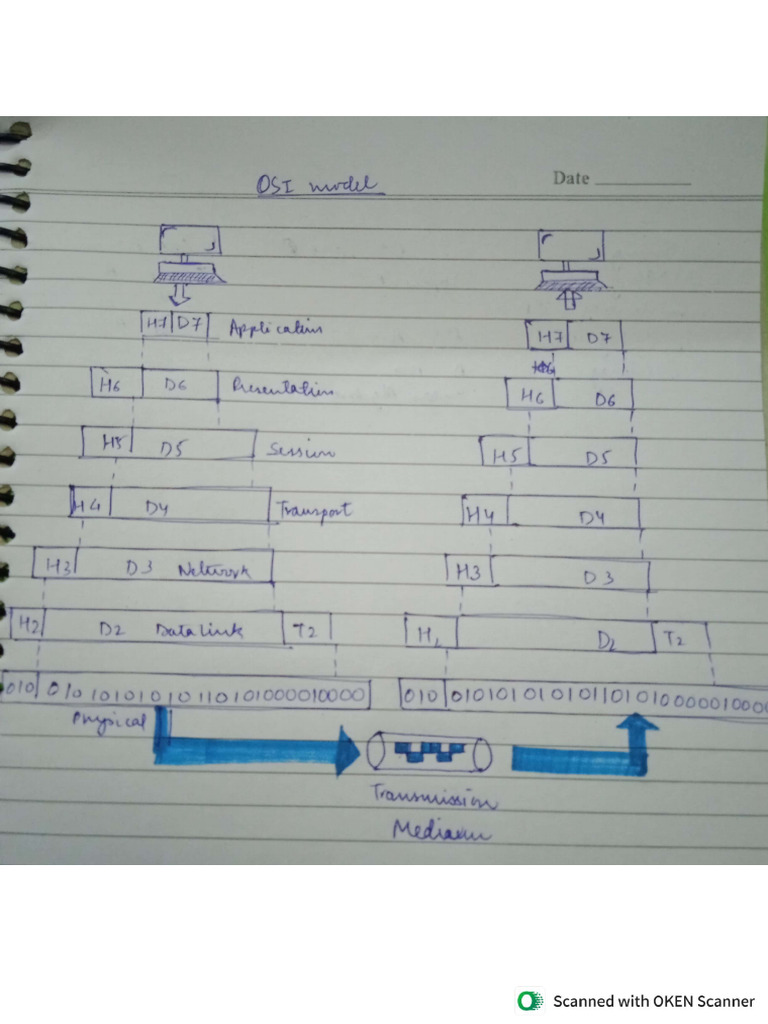 OSI model
Date
H7 D7 Application
H7 D7
H6 D6 Presentation
H6 D6
H5 D5 Session
H5 D5
H4 D4 Transport
H4 D4
H3 D3 Network
H3 D3
H2 D2 Data Link T2
H2 D2 T2
010 010 10101010110101000010000
010 010101010101101010000010000
Physical
Transmission
Medium
Scanned with OKEN Scanner